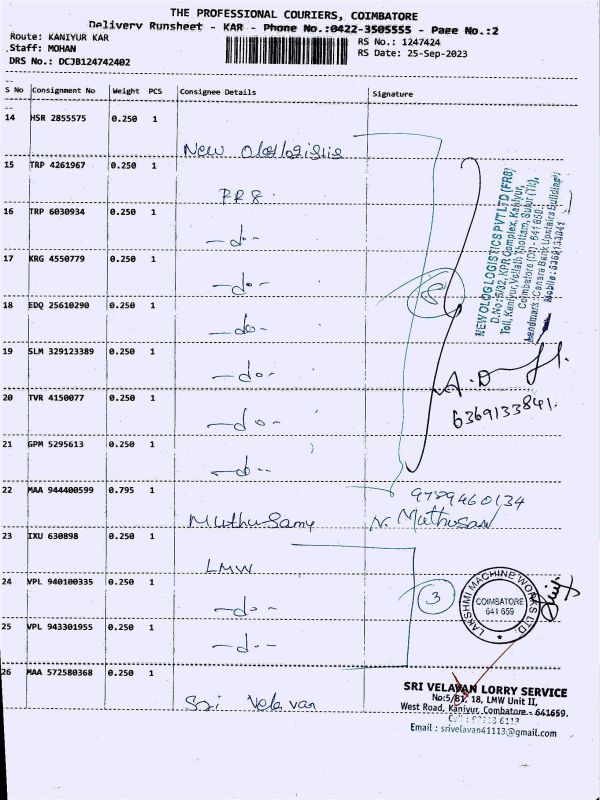 THE PROFESSIONAL COURIERS, COIMBATORE
Delivery Runsheet - KAR - Phone No.:0422-3505555 - Page No.:2
Route: KANIYUR KAR
Staff: MOHAN
DRS No.: DCJB124742402
RS No.: 1247424
RS Date: 25-Sep-2023
S No Consignment No Weight PCS Consignee Details Signature
14 HSR 2855575 0.250 1
New
15 TRP 4261967 0.250 1
FR8
16 TRP 6030934 0.250 1
-do-
17 KRG 4550779 0.250 1
-do-
18 EDQ 25610290 0.250 1
-do-
19 SLM 329123389 0.250 1
-do-
20 TVR 4150077 0.250 1
-do-
21 GPM 5295613 0.250 1
-do-
8
NEW OLOG LOGISTICS PVT LTD (FR8)
D.No:5/32, KPR Complex, Kaniyur,
Toll, Kaniyur, Thottam, Sulur (Tk),
Coimbatore (Dt) - 641 659.
Landmark: Canara Bank Upstairs Building
Mobile: 6369133841
A.D
6369133841.
22 MAA 944400599 0.795 1
Muthusamy
9789460134
N. Muthusam
23 IXU 630898 0.250 1
LMW
24 VPL 940100335 0.250 1
-do-
25 VPL 943301955 0.250 1
-do-
3
LAKSHMI MACHINE WORKS LTD.
COIMBATORE
641 659
26 MAA 572580368 0.250 1
Sri Velavan
SRI VELAVAN LORRY SERVICE
No:5/81, 18, LMW Unit II,
West Road, Kaniyur, Combatore - 641659.
Cell :
Email : srivelavan41113@gmail.com